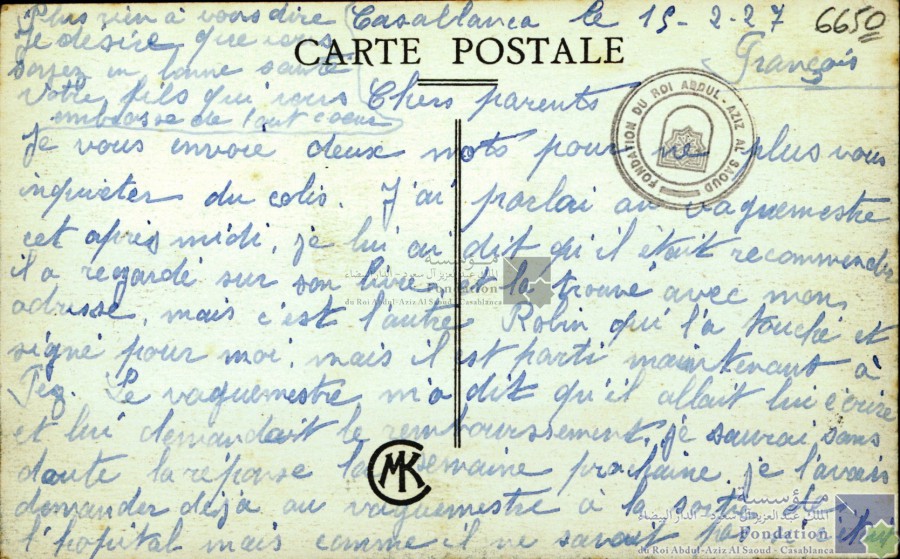 Casablanca le 15-2-27
6650
CARTE POSTALE
François
Chers parents
je vous envoie deux mots pour ne plus vous
inquiéter du colis. J'ai parlai au vaguemestre
cet après midi, je lui ai dit qu'il était recommander
il a regardé sur son livre et la trouvé avec mon
adresse, mais c'est l'autre Robin qui l'a touché et
signé pour moi, mais il est parti maintenant à
Fez. Le vaguemestre m'a dit qu'il allait lui écrire
et lui demandait le remboursement, je saurai sans
doute la réponse la semaine prochaine je l'avais
demander déjà au vaguemestre à la sortie de
l'hopital mais comme il ne savait pas
Plus rien à vous dire
je désire que vous
soyez en bonne santé
Votre fils qui vous
embrasse de tout coeur
FONDATION DU ROI ABDUL-AZIZ AL SAOUD
مؤسسة
الملك عبد العزيز آل سعود - الدار البيضاء
Fondation
du Roi Abdul-Aziz Al Saoud - Casablanca
CMK
مؤسسة
الملك عبد العزيز آل سعود - الدار البيضاء
Fondation
du Roi Abdul-Aziz Al Saoud - Casablanca